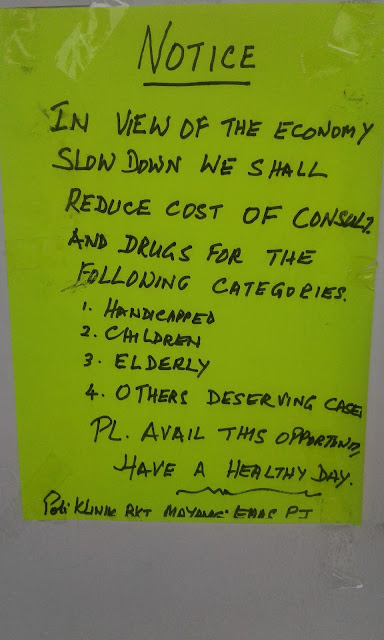 NOTICE
IN VIEW OF THE ECONOMY
SLOW DOWN WE SHALL
REDUCE COST OF CONSULT.
AND DRUGS FOR THE
FOLLOWING CATEGORIES.
1. HANDICAPPED
2. CHILDREN
3. ELDERLY
4. OTHERS DESERVING CASE
PL. AVAIL THIS OPPORTUNITY,
HAVE A HEALTHY DAY.
Poli KLINIK PJ